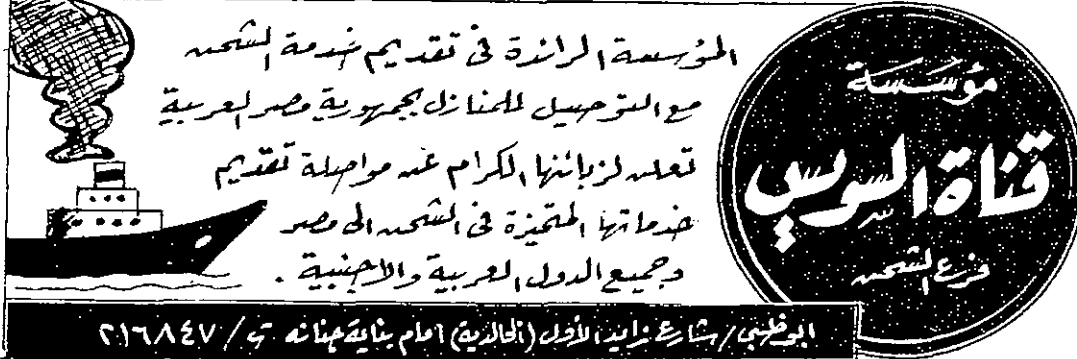 مؤسسة
قناة السويس
فرع الشحن
المؤسسة الرائدة في تقديم خدمة الشحن
مع التوصيل للمنازل بجمهورية مصر العربية
تعلن لزبائنها الكرام عن مواصلة تقديم
خدماتها المتميزة في الشحن الى مصر
وجميع الدول العربية والاجنبية .
ابوظبي / شارع زايد الأول (الخالدية) امام بناية جنانه ت / ٢١٦٨٤٧